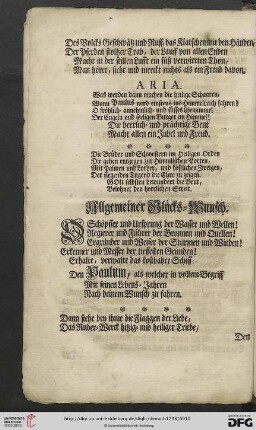 Des Volcks Geschwätz und Ruff, das Klatschen mit den Händen,
Der Pferden stoltzer Trab, der Lauff von allen Enden
Macht in der stillen Lufft ein fast verwirrten Thon,
Man höret, sieht und merckt nichts als ein Freud davon,
ARIA.
Was werden dann machen die heilige Schaaren,
Wann Paulus wird einstens im Himmelreich fahren!
O fröhlich-annehmlich- und süsses
Der Engeln und seeligen Burger im Himmel!
Die herrlich- und prächtige Beut
Macht allen ein Jubel und Freud.
Die Brüder und Schwestern im Heiligen Orden
Die gehen entgegen zur Himmlischen Porten,
Mit Palmen und Lorber, und köstlichen Zweigen,
Der siegenden Tugend die Ehre zu zeigen,
GOtt selbsten bewundert die Beut,
Belohnet den herrlichen Streit.
Allgemeiner Glücks-Wunsch.
O Schöpffer und Ursprung der Wasser und Wellen!
Regierer und Führer der Brounen und Quellen!
Gegründer und Weiser der Sturmen und Winden!
Erkenner und Messer der tieffesten Gründen!
Erhalte, verwalte das kostbahre Schiff
Den Paulum, als welcher in vollem Begriff
Mit seinen Lebens-Jahren
Nach deinem Wunsch zu fahren.
Dann siehe bey ihme die Flaggen der Liebe,
Das Ruder-Werck hitzig- und heiliger Triebe,
Den
UNIVERSITÄTS-BIBLIOTHEK HEIDELBERG
© Universitätsbibliothek Heidelberg
Gefördert durch DFG